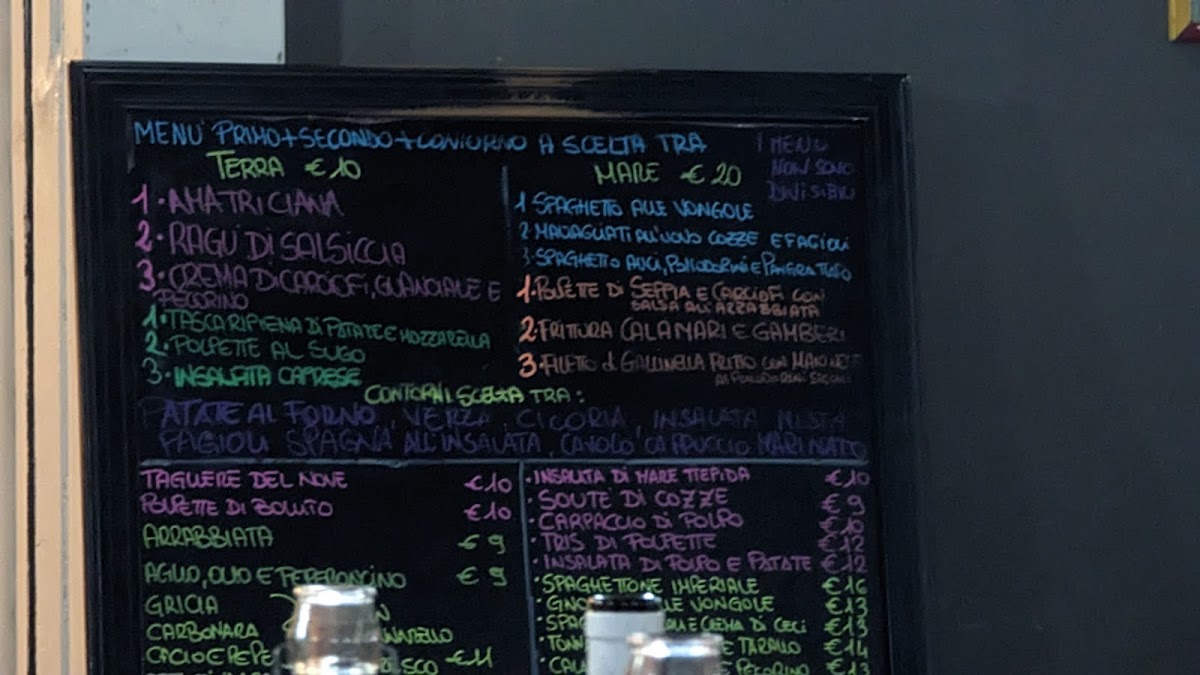 MENU' PRIMO+SECONDO+CONTORNO A SCELTA TRA
I MENU
NON SONO
DIVISIBILI
TERRA €10
1. AMATRICIANA
2. RAGU' DI SALSICCIA
3. CREMA DI CARCIOFI, GUANCIALE E
PECORINO
1. TASCA RIPIENA DI PATATE E MOZZARELLA
2. POLPETTE AL SUGO
3. INSALATA CAPRESE
MARE €20
1 SPAGHETTO ALLE VONGOLE
2 MALTAGLIATI ALL'UOVO COZZE E FAGIOLI
3. SPAGHETTO ALICI, POMODORINI E PANGRATTATO
1. POLPETTE DI SEPPIA E CARCIOFI CON
SALSA ALL'ARRABBIATA
2. FRITTURA CALAMARI E GAMBERI
3. FILETTO di GALLINELLA FRITTO CON
CONTORNI SCELTA TRA:
PATATE AL FORNO, VERZA, CICORIA, INSALATA MISTA
FAGIOLI SPAGNA ALL'INSALATA, CAVOLO CAPPUCCIO MARINATO
TAGLIERE DEL NOVE €10
POLPETTE DI BOLLITO €10
ARRABBIATA €9
AGLIO, OLIO E PEPERONCINO €9
GRICIA
CARBONARA
CACIO E PEPE €11
· INSALATA DI MARE TIEPIDA €10
· SOUTE' DI COZZE €9
· CARPACCIO DI POLPO €10
· TRIS DI POLPETTE €12
· INSALATA DI POLPO E PATATE €12
· SPAGHETTONE IMPERIALE €16
· GNO LLE VONGOLE €13
· SPAG E CREMA DI CECI €13
· TONN E TARALLO €14
· CAL E PECORINO €13